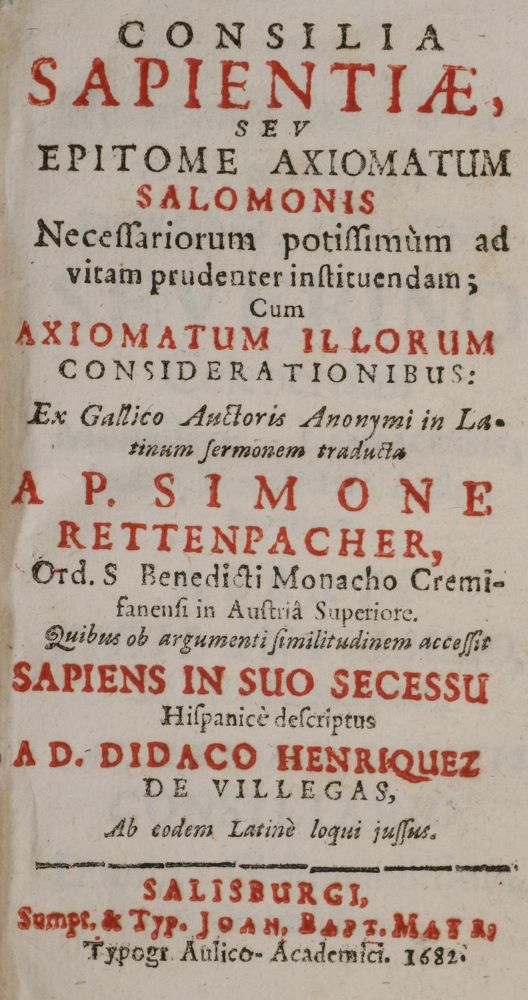 CONSILIA
SAPIENTIÆ,
SEV
EPITOME AXIOMATUM
SALOMONIS
Neceſſariorum potiſſimùm ad
vitam prudenter inſtituendam;
Cum
AXIOMATUM ILLORUM
CONSIDERATIONIBUS:
Ex Gallico Auctoris Anonymi in La-
tinum ſermonem traducta
A P. SIMONE
RETTENPACHER,
Ord. S Benedicti Monacho Cremi-
fanenſi in Auſtriâ Superiore.
Quibus ob argumenti ſimilitudinem acceſſit
SAPIENS IN SUO SECESSU
Hiſpanicè deſcriptus
A D. DIDACO HENRIQUEZ
DE VILLEGAS,
Ab eodem Latinè loqui juſſus.
SALISBURGI,
Sumpt. & Typ. JOAN. BAPT. MAYR,
Typogr. Aulico-Academici. 1682.